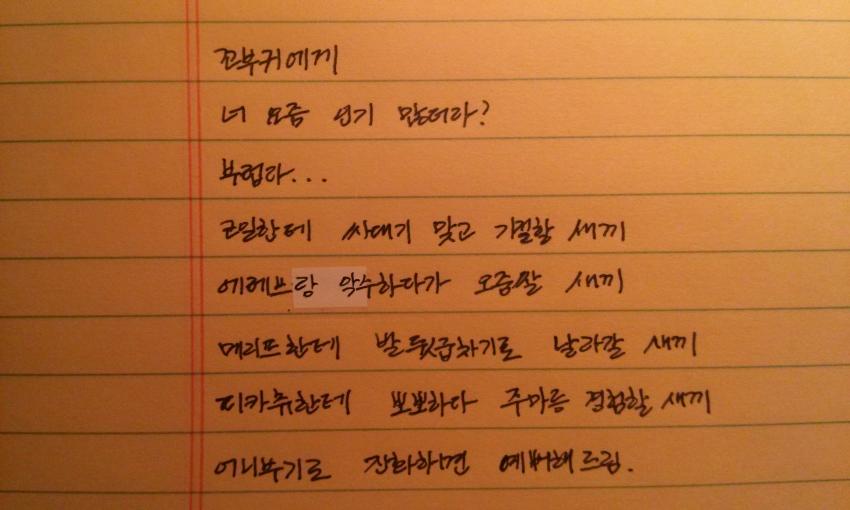 꼬부귀에게
너 요즘 인기 많더라?
부럽다...
근밀한테 싸대기 맞고 기절할 새끼
에레브랑 악수하다가 오줌쌀 새끼
메리프한테 발뒷굽차기로 날라갈 새끼
피카츄한테 뽀뽀하다 주마등 경험할 새끼
어니부기로 진화하면 예뻐해드림.